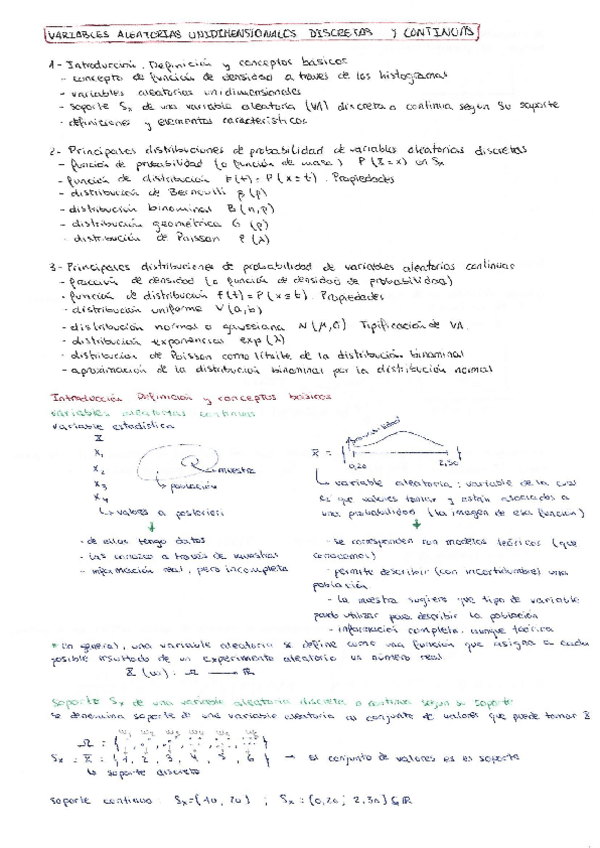 VARIABLES ALEATORIAS UNIDIMENSIONALES DISCRETAS Y CONTINUAS
1- Introducción. Definición y conceptos básicos
- concepto de función de densidad a través de los histogramas
- variables aleatorias unidimensionales
- soporte Sx de una variable aleatoria (VA) discreta o continua según su soporte
- definiciones y elementos característicos
2- Principales distribuciones de probabilidad de variables aleatorias discretas
- función de probabilidad (o función de masa) P(X=x) en Sx
- función de distribución F(t) = P(X≤t). Propiedades
- distribución de Bernoulli β(p)
- distribución binominal B(n,p)
- distribución geométrica G(p)
- distribución de Poisson P(λ)
3- Principales distribuciones de probabilidad de variables aleatorias continuas
- función de densidad (o función de densidad de probabilidad)
- función de distribución F(t) = P(X≤t). Propiedades
- distribución uniforme U(a,b)
- distribución normal o gaussiana N(μ,σ) Tipificación de VA.
- distribución exponencial exp(λ)
- distribución de Poisson como límite de la distribución binominal
- aproximación de la distribución binominal por la distribución normal
Introducción Definición y conceptos básicos
variables aleatorias continuas
variable estadística
X
x1
x2
x3
x4
muestra
población
valores a posteriori
- de ellas tengo datos
- las conozco a través de muestras
- información real, pero incompleta
probabilidad
X =
0,20 2,30
variable aleatoria: variable de la cual
es que valores tomar y están asociados a
una probabilidad (la imagen de esa función)
- se corresponden con modelos teóricos (que
conocemos)
- permite describir (con incertidumbre) una
población.
- la muestra sugiere que tipo de variable
puedo utilizar para describir la población
- información completa, aunque teórica
* En general, una variable aleatoria se define como una función que asigna a cada
posible resultado de un experimento aleatorio un número real
X(ω): Ω → ℝ
Soporte Sx de una variable aleatoria discreta o continua según su soporte
Se denomina soporte de una variable aleatoria al conjunto de valores que puede tomar X
Ω = {
Sx = X = {1, 2, 3, 4, 5, 6} → el conjunto de valores es el soporte
soporte discreto
soporte continuo: Sx = (10, 20) ; Sx = (0,20; 2,30) ⊆ ℝ